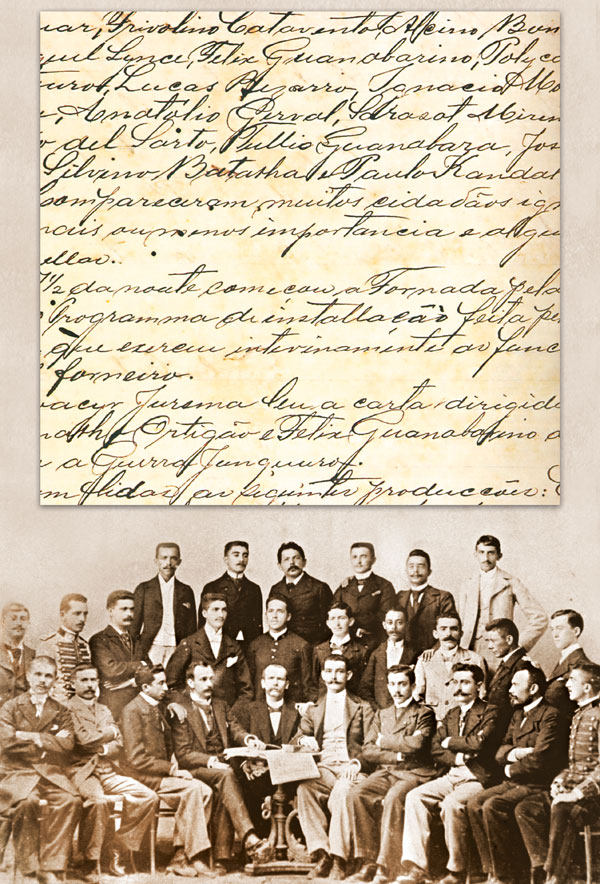 uar, Frivolino Catavento, Alcino Ban
uel Lynce, Felix Guanabarino, Polyca
turot, Lucas Bizarro, Ignacio Mo
a, Anatolio Gerval, Sarasat Mirim
o del Sarto, Tullio Guanabara, Jos
Silvino Batalha e Paulo Kandal
compareceram muitos cidadãos ig
mais ou menos importancia e algu
ellas.
7 1/2 da noute começou a Fornada pela
Programma de installação feita pe
que exerceu interinamente as func
forneiro.
acyr Jurema leu a carta dirigida
Ortigão e Felix Guanabarino a
e a Guerra Junqueiro.
am lidas as seguintes producções: